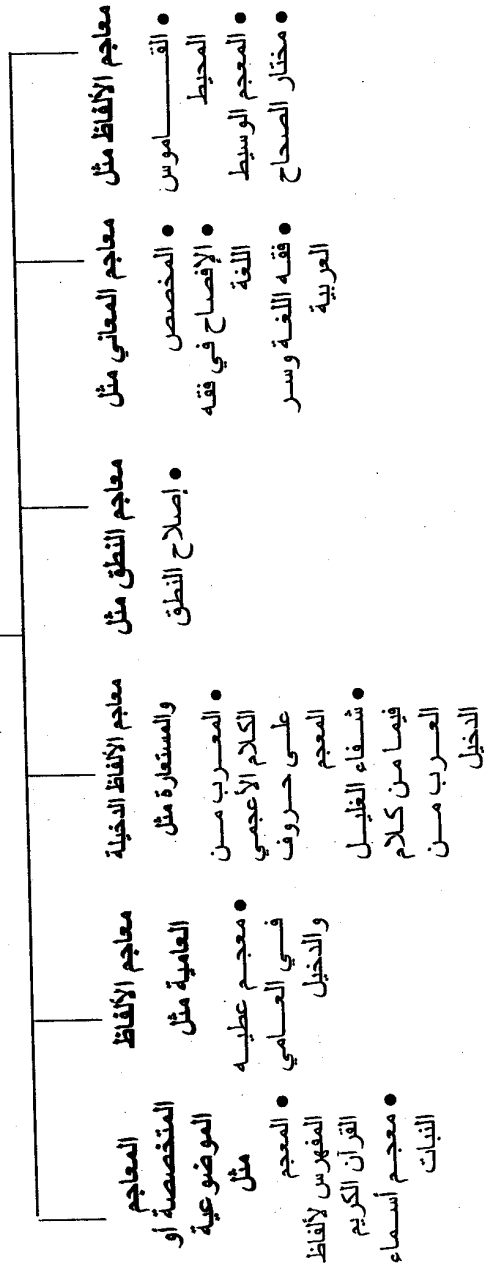 معاجم الألفاظ مثل
● القـــــاموس
المحيط
● المعجم الوسيط
● مختار الصحاح
معاجم المعاني مثل
● المخصص
● الإفصاح في فقه
اللغة
● فقه اللغة وسر
العربية
معاجم النطق مثل
● إصلاح النطق
معاجم الألفاظ الدخيلة
والمستعارة مثل
● المعرب من
الكلام الأعجمي
على حروف
المعجم
● شفاء الغليل
فيما من كلام
العرب من
الدخيل
معاجم الألفاظ
العامية مثل
● معجم عطيه
في العامي
والدخيل
المعاجم
المتخصصة أو
الموضوعية
مثل
● المعجم
المفهرس لألفاظ
القرآن الكريم
● معجم أسماء
النبات